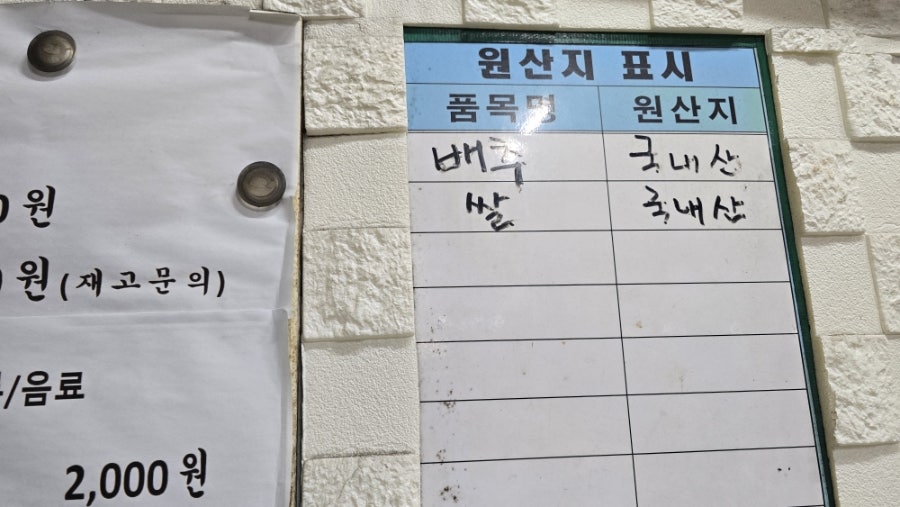 0원
0원(재고문의)
/음료
2,000원
원산지 표시
품목명 원산지
배추 국내산
쌀 국내산